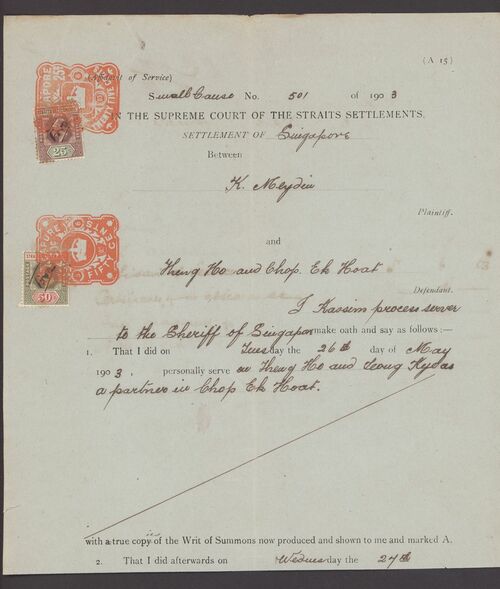 (A 15)
(Affidavit of Service)
Small Cause No. 501 of 1903
IN THE SUPREME COURT OF THE STRAITS SETTLEMENTS.
SETTLEMENT OF Singapore
Between
K. Meydin
Plaintiff.
and
Theng Ho and Chop Ek Hoat
Defendant.
I Kassim process server
to the Sheriff of Singapore make oath and say as follows :—
1. That I did on Tuesday the 26th day of May
1903, personally serve on Theng Ho and Leong as
a partner in Chop Ek Hoat.
with a true copy of the Writ of Summons now produced and shown to me and marked A.
2. That I did afterwards on Wednesday the 27th
25
50